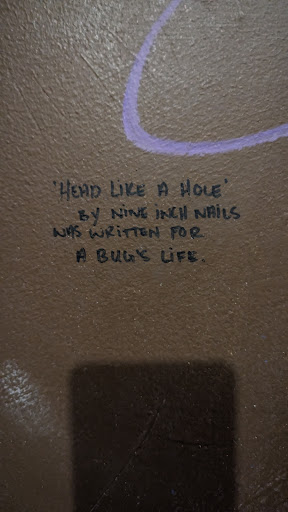 'HEAD LIKE A HOLE'
BY NINE INCH NAILS
WAS WRITTEN FOR
A BUG'S LIFE.